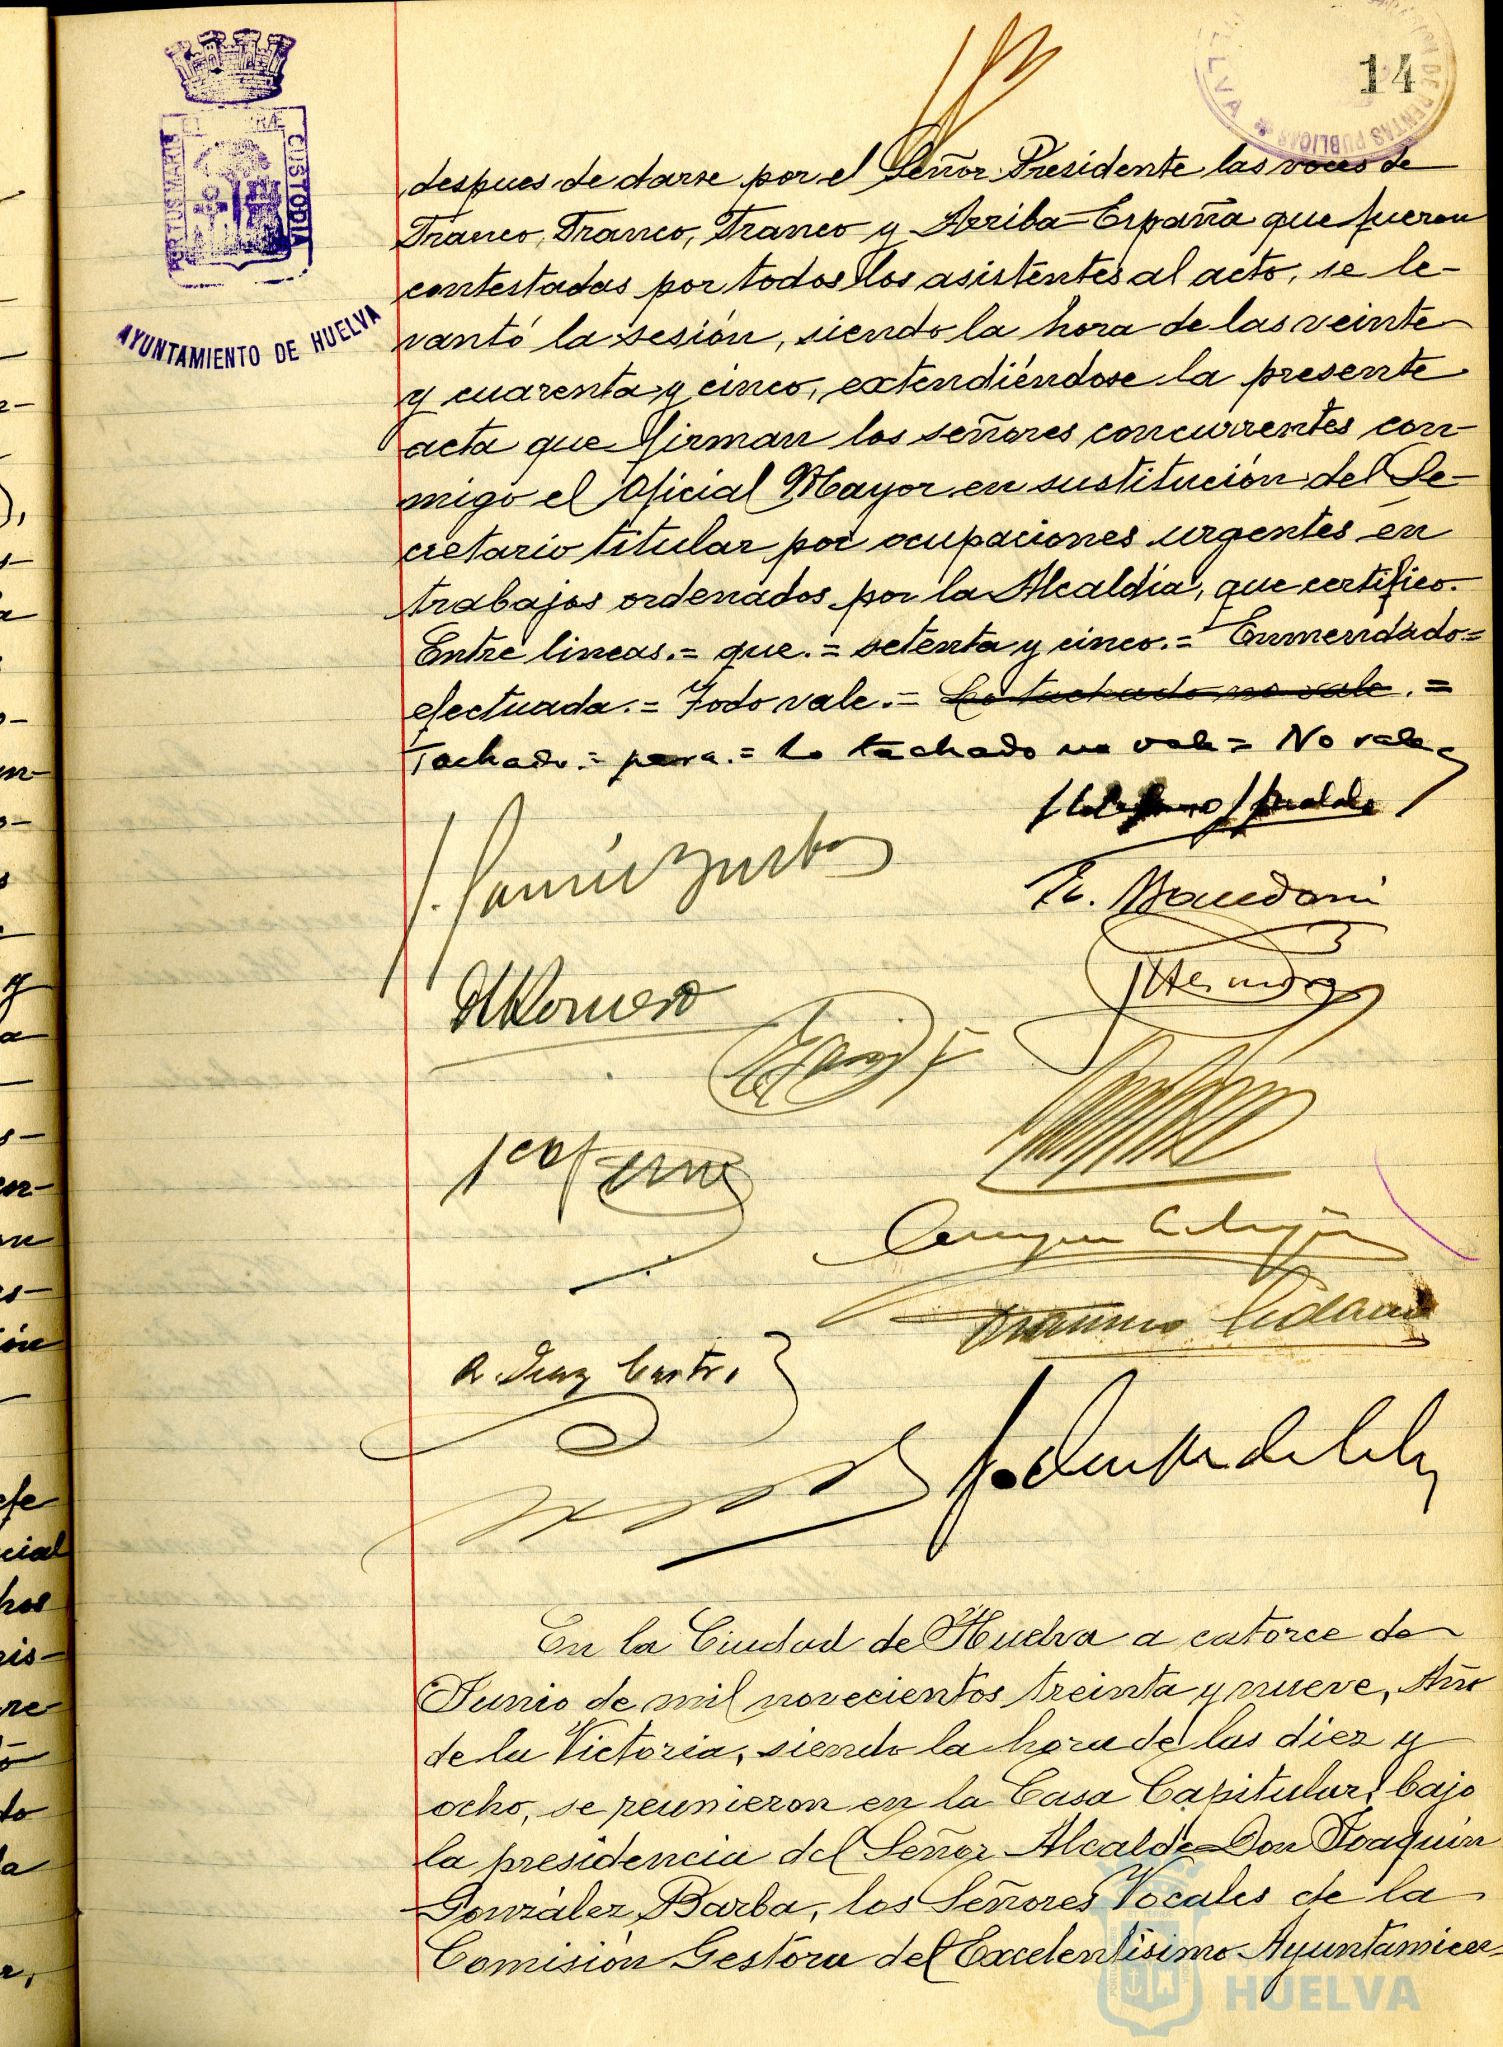 14
PORTUS MARIS ET TERRÆ CUSTODIA
AYUNTAMIENTO DE HUELVA
despues de darse por el Señor Presidente las voces de
Franco, Franco, Franco y Arriba España que fueron
contestadas por todos los asistentes al acto, se le-
vantó la sesión, siendo la hora de las veinte
y cuarenta y cinco, extendiéndose la presente
acta que firman los señores concurrentes con-
migo el Oficial Mayor en sustitución del Se-
cretario titular por ocupaciones urgentes en
trabajos ordenados por la Alcaldía, que certifico.
Entre lineas.= que.= setenta y cinco.= Enmendado=
efectuada.= Todo vale.= Lo tachado no vale.=
Tachado.= para.= Lo tachado no vale= No vale
H Romero
A. Diaz Castro
En la Ciudad de Huelva a catorce de
Junio de mil novecientos treinta y nueve, Año
de la Victoria, siendo la hora de las diez y
ocho, se reunieron en la Casa Capitular, bajo
la presidencia del Señor Alcalde Don Joaquín
González Barba, los Señores Vocales de la
Comisión Gestora del Excelentísimo Ayuntamien-
HUELVA